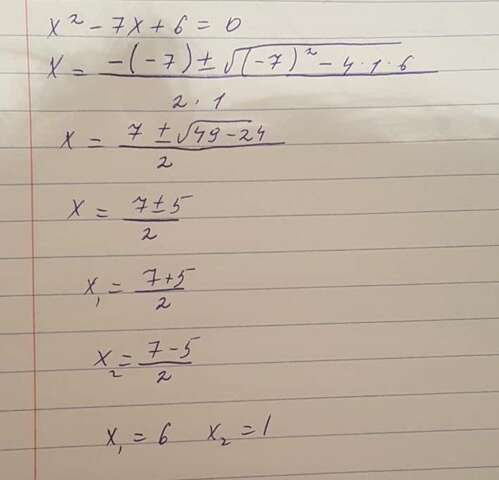 x² - 7x + 6 = 0
x = (-(-7) ± √((-7)² - 4·1·6)) / (2·1)
x = (7 ± √(49-24)) / 2
x = (7±5) / 2
x₁ = (7+5) / 2
x₂ = (7-5) / 2
x₁ = 6 x₂ = 1